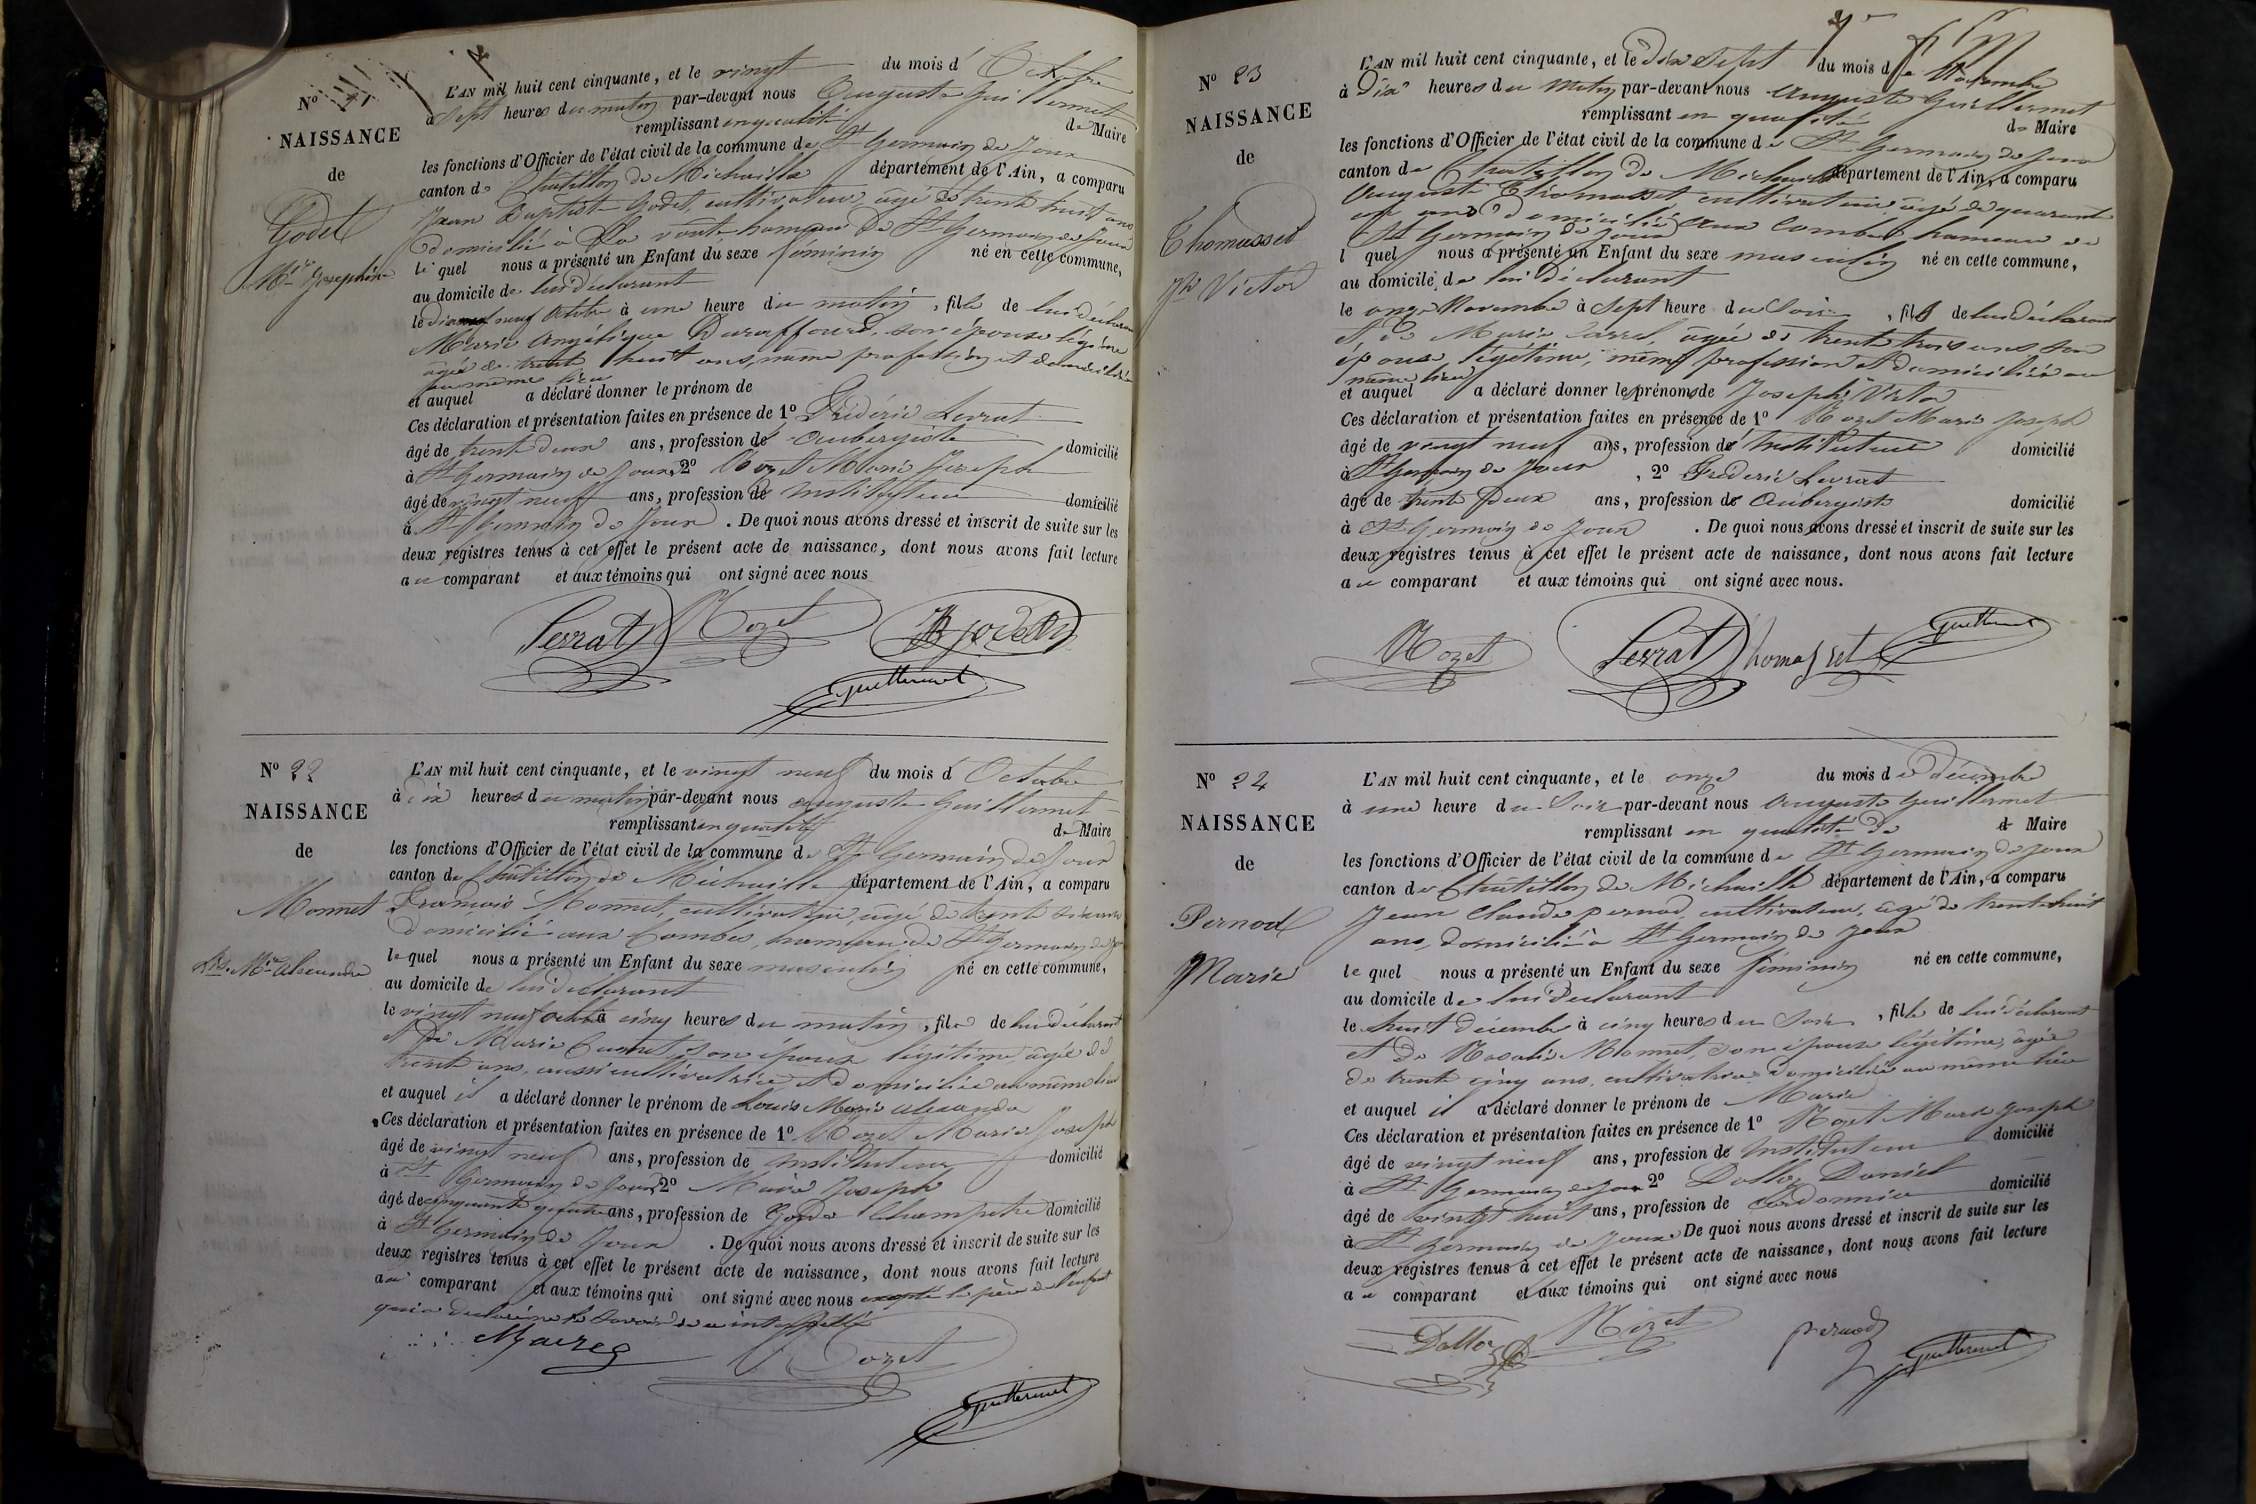 N° 21
NAISSANCE
de
Godet
Mie Josephine
L'AN mil huit cent cinquante, et le vingt du mois d'Octobre
à Sept heures du matin par-devant nous Auguste Guillermet
remplissant en qualité de Maire
les fonctions d'Officier de l'état civil de la commune de St Germain de Joux
canton de Chatillon de Michaille département de l'Ain, a comparu
Jean Baptiste Godet, cultivateur, âgé de trente huit ans
domicilié à La voute hameau de St Germain de Joux
le quel nous a présenté un Enfant du sexe féminin né en cette commune,
au domicile de lui déclarant
le dix neuf Octobre à une heure du matin, fille de lui déclarant
Marie Angélique Duraffourd son épouse légitime
âgée de trente huit ans, même profession et domiciliée
au même lieu
et auquel a déclaré donner le prénom de
Ces déclaration et présentation faites en présence de 1° Frédéric Levrat
âgé de trente deux ans, profession de Aubergiste domicilié
à St Germain de Joux 2° Rozet Marie Joseph
âgé de vingt neuf ans, profession de Instituteur domicilié
à St Germain de Joux. De quoi nous avons dressé et inscrit de suite sur les
deux registres tenus à cet effet le présent acte de naissance, dont nous avons fait lecture
au comparant et aux témoins qui ont signé avec nous
Levrat Rozet JB godet
Guillermet
N° 22
NAISSANCE
de
Monnet
Ls. Mie Alexandre
L'AN mil huit cent cinquante, et le vingt neuf du mois d'Octobre
à dix heures du matin par-devant nous Auguste Guillermet
remplissant en qualité de Maire
les fonctions d'Officier de l'état civil de la commune de St Germain de Joux
canton de Chatillon de Michaille département de l'Ain, a comparu
François Monnet, cultivateur, âgé de trente six ans
domicilié aux Combes, hameau de St Germain de Joux
le quel nous a présenté un Enfant du sexe masculin né en cette commune,
au domicile de lui déclarant
le vingt neuf octobre à cinq heures du matin, fils de lui déclarant
et de Marie son épouse légitime âgée de
trente ans, aussi cultivatrice et domiciliée au même lieu
et auquel il a déclaré donner le prénom de Louis Marie Alexandre
Ces déclaration et présentation faites en présence de 1° Rozet Marie Joseph
âgé de vingt neuf ans, profession de Instituteur domicilié
à St Germain de Joux 2° Maire Joseph
âgé de cinquante quatre ans, profession de Garde Champetre domicilié
à St Germain de Joux. De quoi nous avons dressé et inscrit de suite sur les
deux registres tenus à cet effet le présent acte de naissance, dont nous avons fait lecture
au comparant et aux témoins qui ont signé avec nous excepté le père de l'enfant
qui a déclaré ne le savoir de ce interpellé
Maire Rozet
Guillermet
N° 23
NAISSANCE
de
Thomasset
Jh Victor
L'AN mil huit cent cinquante, et le dix Sept du mois de Novembre
à Dix heures du Matin par-devant nous Auguste Guillermet
remplissant en qualité de Maire
les fonctions d'Officier de l'état civil de la commune de St Germain de Joux
canton de Chatillon de Michaille département de l'Ain, a comparu
Auguste Thomasset cultivateur, âgé de quarante
ans domicilié aux Combes hameau de
St Germain de Joux
l quel nous a présenté un Enfant du sexe masculin né en cette commune,
au domicile de lui déclarant
le onze Novembre à Sept heure du Soir, fils de lui déclarant
et de Marie âgée de trente trois ans son
épouse légitime, même profession et domiciliée au
même lieu
et auquel a déclaré donner les prénoms de Joseph Victor
Ces déclaration et présentation faites en présence de 1° Rozet Marie Joseph
âgé de vingt neuf ans, profession de Instituteur domicilié
à St Germain de Joux, 2° Frederic Levrat
âgé de trente deux ans, profession de Aubergiste domicilié
à St Germain de Joux. De quoi nous avons dressé et inscrit de suite sur les
deux registres tenus à cet effet le présent acte de naissance, dont nous avons fait lecture
au comparant et aux témoins qui ont signé avec nous.
Rozet Levrat Thomasset Guillermet
N° 24
NAISSANCE
de
Pernod
Marie
L'AN mil huit cent cinquante, et le onze du mois de décembre
à une heure du Soir par-devant nous Auguste Guillermet
remplissant en qualité de d Maire
les fonctions d'Officier de l'état civil de la commune de St Germain de Joux
canton de Chatillon de Michaille département de l'Ain, a comparu
Jean Claude Pernod, cultivateur, âgé de trente huit
ans, domicilié à St Germain de Joux
le quel nous a présenté un Enfant du sexe féminin né en cette commune,
au domicile de lui déclarant
le huit décembre à cinq heures du Soir, fille de lui déclarant
et de Rosalie Monnet, son épouse légitime, âgée
de trente cinq ans, cultivatrice domiciliée au même lieu
et auquel il a déclaré donner le prénom de Marie
Ces déclaration et présentation faites en présence de 1° Rozet Marie Joseph
âgé de vingt neuf ans, profession de Instituteur domicilié
à St Germain de Joux 2° Dalloz Daniel
âgé de vingt huit ans, profession de Cordonnier domicilié
à St Germain de Joux De quoi nous avons dressé et inscrit de suite sur les
deux registres tenus à cet effet le présent acte de naissance, dont nous avons fait lecture
au comparant et aux témoins qui ont signé avec nous
Dalloz Rozet pernod Guillermet